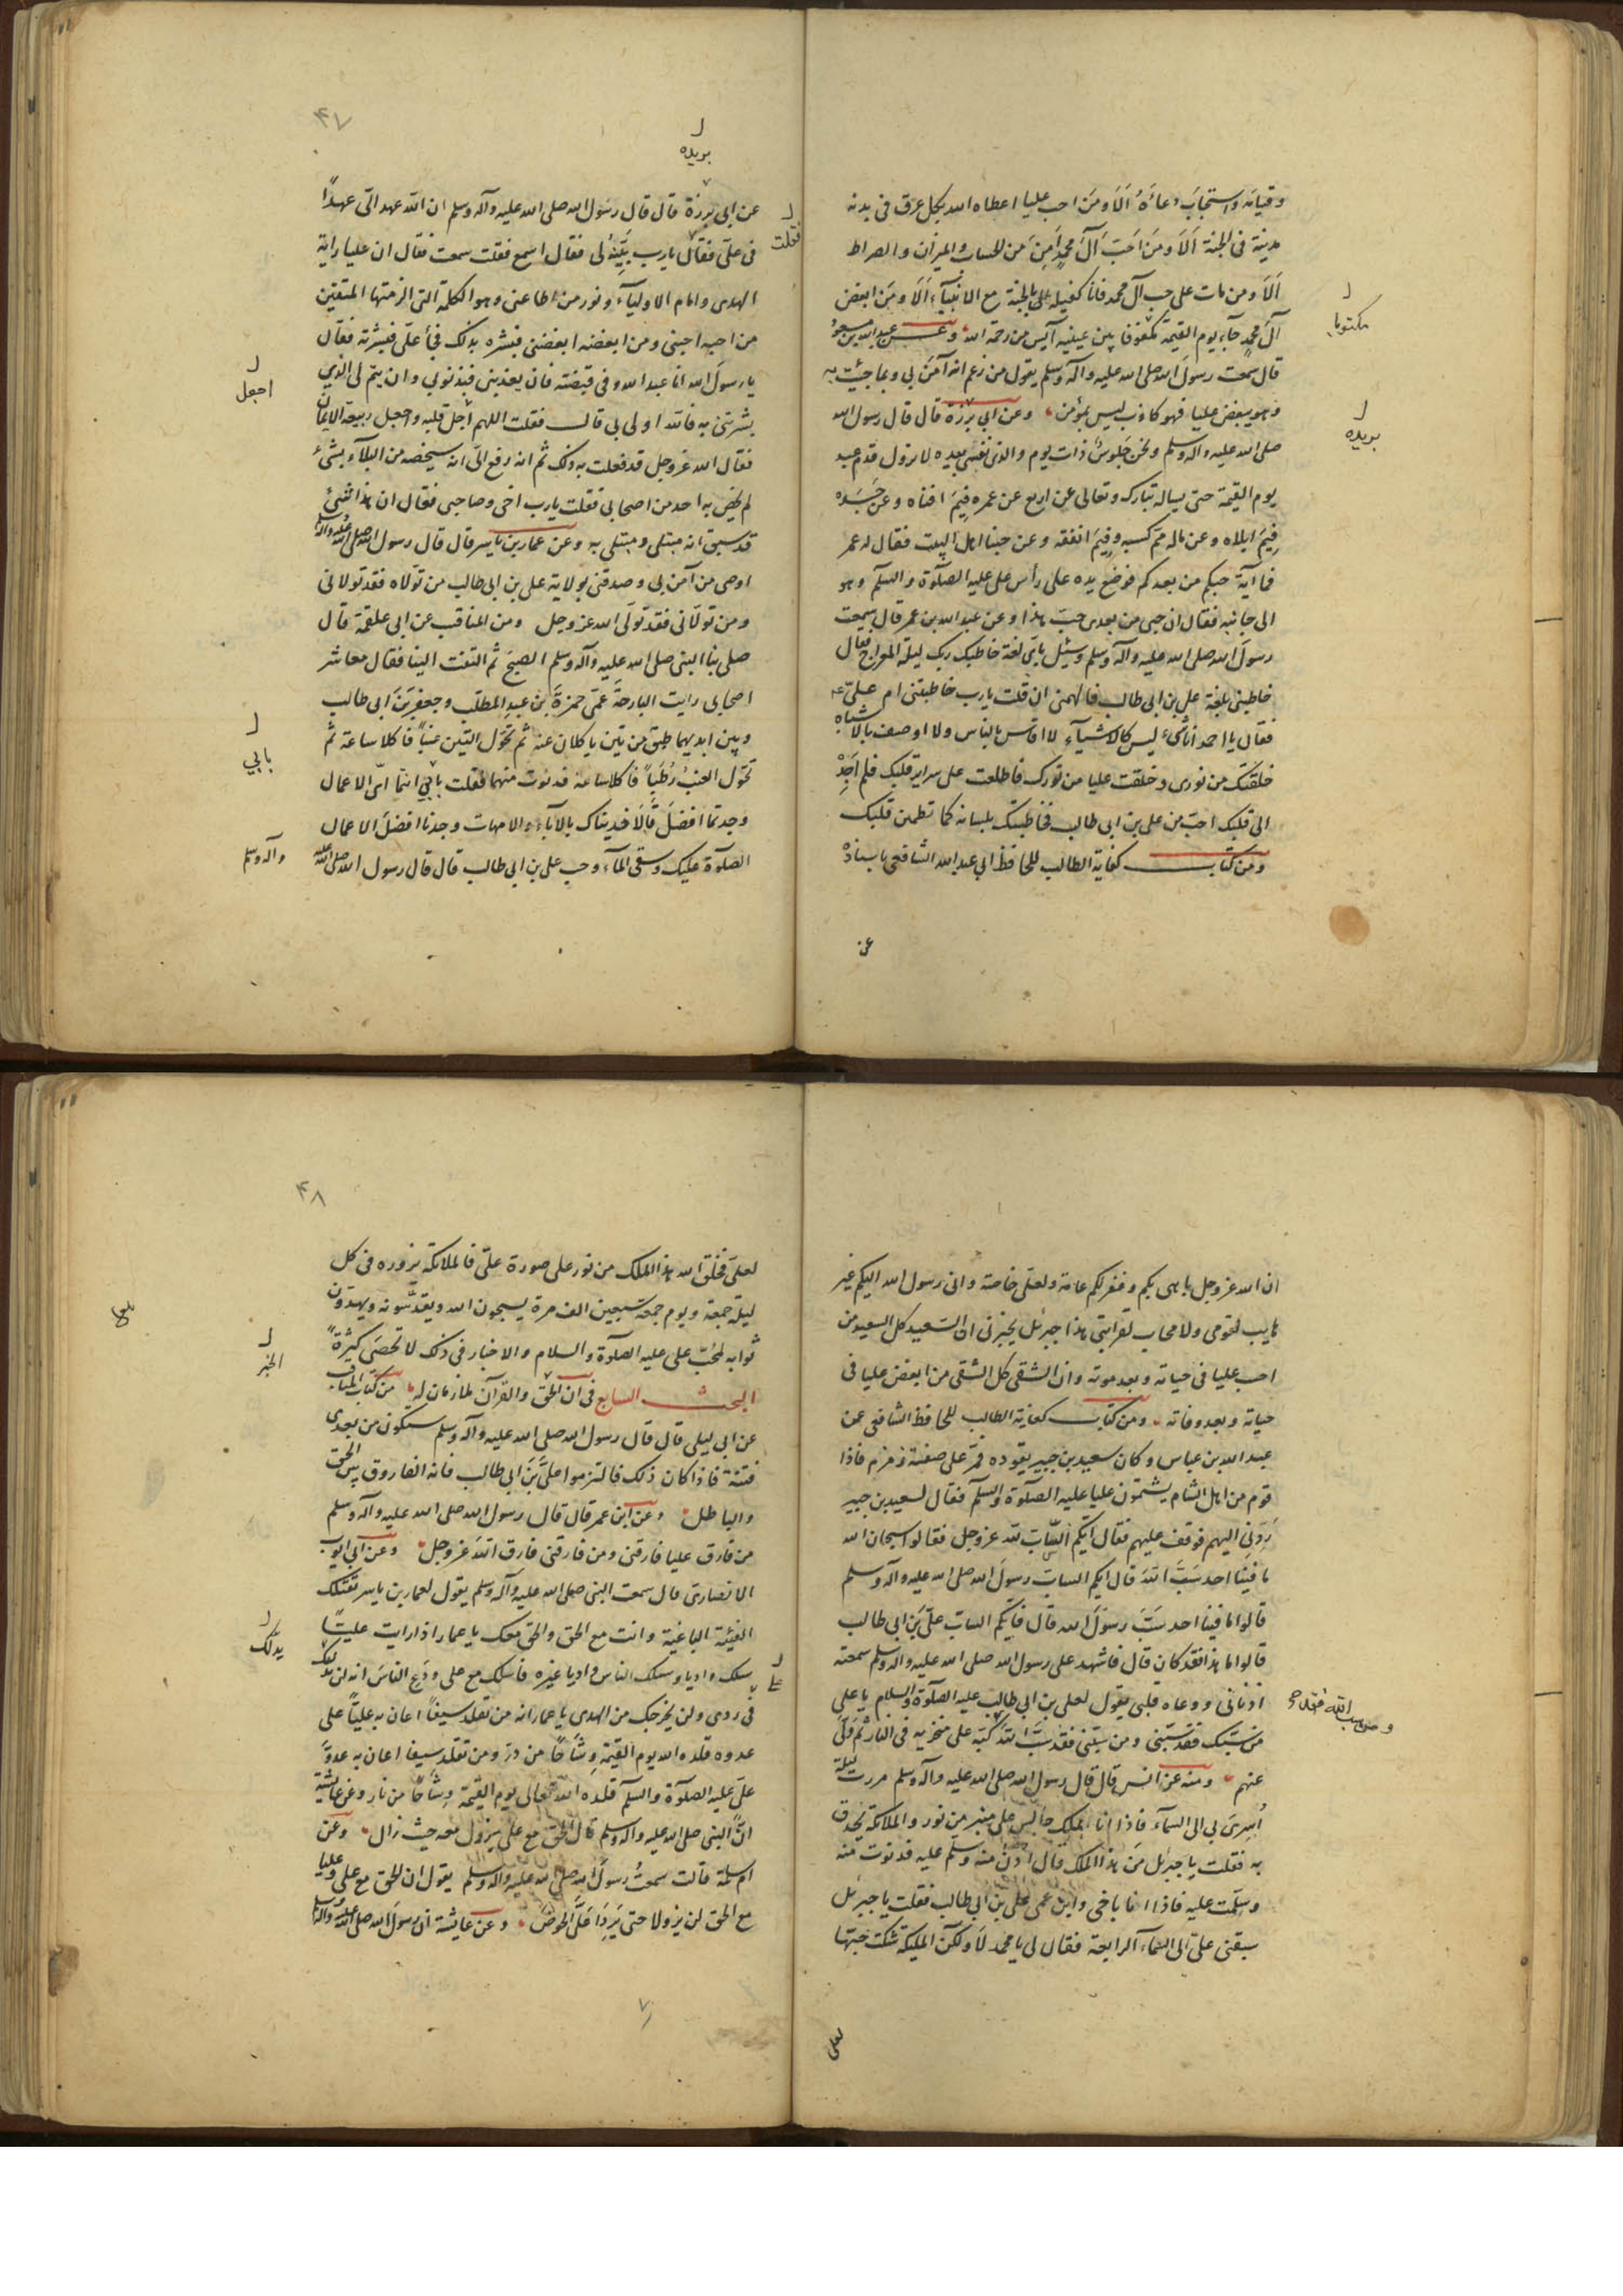 وقيامه واستجاب دعاءه ألا ومن احب عليا اعطاه الله بكل عرق في بدنه
مدينة في الجنة ألا ومن احب آل محمد امن من الحساب والميزان والصراط
ألا ومن مات على حب آل محمد فانا كفيله بالجنة مع الانبياء ألا ومن ابغض
آل محمد جاء يوم القيمة مكتوبا بين عينيه آيس من رحمة الله وعن عبد الله بن مسعود
قال سمعت رسول الله صلى الله عليه وآله وسلم يقول من زعم انه آمن بي وبما جئت به
وهو يبغض عليا فهو كاذب ليس بمؤمن وعن ابي برزة قال قال رسول الله
صلى الله عليه وآله وسلم ونحن جلوس ذات يوم والذي نفسي بيده لا تزول قدم عبد
يوم القيمة حتى يساله تبارك وتعالى عن اربع عن عمره فيم افناه وعن جسده
فيم ابلاه وعن ماله مم كسبه وفيم انفقه وعن حبنا اهل البيت فقال له عمر
فما آية حبكم من بعدكم فوضع يده على رأس علي عليه الصلوة والسلم وهو
الى جانبه فقال ان حبي من بعدي حب هذا وعن عبد الله بن عمر قال سمعت
رسول الله صلى الله عليه وآله وسلم وسئل باي لغة خاطبك ربك ليلة المعراج فقال
خاطبني بلغة علي بن ابي طالب فالهمني ان قلت يا رب خاطبتني ام علي
فقال يا احمد انا شيء ليس كالاشياء لا اقاس بالناس ولا اوصف بالاشباه
خلقتك من نوري وخلقت عليا من نورك فاطلعت على سراير قلبك فلم اجد
الى قلبك احب من علي بن ابي طالب فخاطبتك بلسانه كما تطمئن قلبك
ومن كتاب كفاية الطالب للحافظ ابي عبد الله الشافعي باسناده
عن
مكتوبا
بريده
۴۷
بريده
عن ابي برزة قال قال رسول الله صلى الله عليه وآله وسلم ان الله عهد الي عهدا
في علي فقال يا رب بينه لي فقال اسمع فقلت سمعت فقال ان عليا راية
الهدى وامام الاولياء ونور من اطاعني وهو الكلمة التي الزمتها المتقين
من احبه احبني ومن ابغضه ابغضني فبشره بذلك فجاء علي فبشرته فقال
يا رسول الله انا عبد الله وفي قبضته فان يعذبني فبذنوبي وان يتم لي الذي
بشرتني به فالله اولى بي قال فقلت اللهم اجل قلبه واجعل ربيعه الايمان
فقال الله عز وجل قد فعلت به ذلك ثم انه رفع الي انه سيخصه من البلاء بشيء
لم يخص به احد من اصحابي فقلت يا رب اخي وصاحبي فقال ان هذا شيء
قد سبق انه مبتلى ومبتلى به وعن عمار بن ياسر قال قال رسول الله صلى الله عليه وآله
اوصي من آمن بي وصدقني بولاية علي بن ابي طالب من تولاه فقد تولاني
ومن تولاني فقد تولى الله عز وجل ومن المناقب عن ابي علقمة قال
صلى بنا النبي صلى الله عليه وآله وسلم الصبح ثم التفت الينا فقال معاشر
اصحابي رايت البارحة عمي حمزة بن عبد المطلب وجعفر بن ابي طالب
وبين ايديهما طبق من تين ياكلان منه ثم تحول التين عنبا فاكلا ساعة ثم
تحول العنب رطبا فاكلا ساعة فدنوت منهما فقلت بابي انتما اي الاعمال
وجدتما افضل قالا فديناك بالآباء والامهات وجدنا افضل الاعمال
الصلوة عليك وسقي الماء وحب علي بن ابي طالب قال قال رسول الله صلى الله عليه
فقلت
اجعل
بابي
وآله وسلم
ان الله عز وجل باهى بكم وغفر لكم عامة ولعلي خاصة واني رسول الله اليكم غير
هايب لقومي ولا محاب لقرابتي هذا جبرئل يخبرني ان السعيد كل السعيد من
احب عليا في حياته وبعد موته وان الشقي كل الشقي من ابغض عليا في
حياته وبعد وفاته ومن كتاب كفاية الطالب للحافظ الشافعي عن
عبد الله بن عباس وكان سعيد بن جبير يقوده فمر على صفة زمزم فاذا
قوم من اهل الشام يشتمون عليا عليه الصلوة والسلم فقال لسعيد بن جبير
ردني اليهم فوقف عليهم فقال ايكم الساب لله عز وجل فقالوا سبحان الله
ما فينا احد سب الله قال ايكم الساب رسول الله صلى الله عليه وآله وسلم
قالوا ما فينا احد سب رسول الله قال فايكم الساب علي بن ابي طالب
قالوا اما هذا فقد كان قال فاشهد على رسول الله صلى الله عليه وآله وسلم سمعته
اذناي ووعاه قلبي يقول لعلي بن ابي طالب عليه الصلوة والسلم يا علي
من سبك فقد سبني ومن سبني فقد سب الله كبه على منخريه في النار ثم ولى
عنهم ومنه عن انس قال قال رسول الله صلى الله عليه وآله وسلم مررت ليلة
اسري بي الى السماء فاذا انا بملك جالس على منبر من نور والملائكة تحدق
به فقلت يا جبرئل من هذا الملك قال ادن منه وسلم عليه فدنوت منه
وسلمت عليه فاذا انا باخي وابن عمي علي بن ابي طالب فقلت يا جبرئل
سبقني علي الى السماء الرابعة فقال لي يا محمد لا ولكن المليكة شكت حبها
لعلي
ومن سب الله فقد
۴۸
لعلي فخلق الله هذا الملك من نور على صورة علي فالملائكة تزوره في كل
ليلة جمعة ويوم جمعة سبعين الف مرة يسبحون الله ويقدسونه ويهدون
ثوابه لمحب علي عليه الصلوة والسلام والاخبار في ذلك لا تحصى كثرة
البحث السابع في ان الحق والقرآن ملازمان له من كتاب المناقب
عن ابي ليلى قال قال رسول الله صلى الله عليه وآله وسلم ستكون من بعدي
فتنة فاذا كان ذلك فالتزموا علي بن ابي طالب فانه الفاروق بين الحق
والباطل وعن ابن عمر قال قال رسول الله صلى الله عليه وآله وسلم
من فارق عليا فارقني ومن فارقني فارق الله عز وجل وعن ابي ايوب
الانصاري قال سمعت النبي صلى الله عليه وآله وسلم يقول لعمار بن ياسر تقتلك
الفيئة الباغية وانت مع الحق والحق معك يا عمار اذا رايت عليا
سلك واديا وسلك الناس واديا غيره فاسلك مع علي ودع الناس انه لن يدلك
في ردى ولن يخرجك من الهدى يا عمار انه من تقلد سيفا اعان به عليا على
عدوه قلده الله يوم القيمة وشاحا من در ومن تقلد سيفا اعان به عدو
علي عليه الصلوة والسلم قلده الله تعالى يوم القيمة وشاحا من نار وعن عايشة
ان النبي صلى الله عليه وآله وسلم قال الحق مع علي يزول معه حيث زال وعن
ام سلمة قالت سمعت رسول الله صلى الله عليه وآله وسلم يقول ان الحق مع علي وعليا
مع الحق لن يزولا حتى يردا علي الحوض وعن عايشة ان رسول الله صلى الله عليه وآله وسلم
الخبر
يدلك